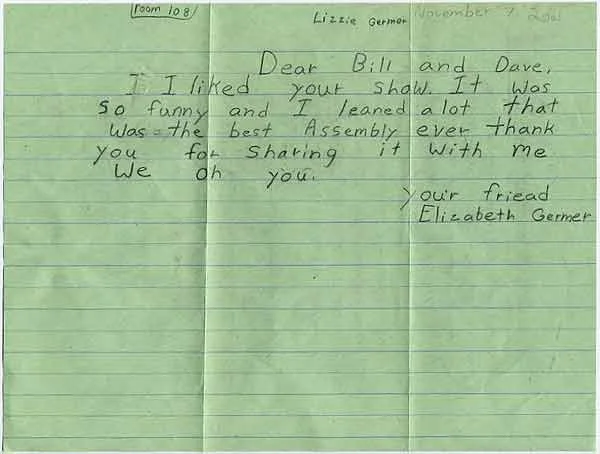 room 108
Lizzie Germer November 7, 
Dear Bill and Dave,
I I liked your show. It was
so funny and I leaned a lot that
was the best Assembly ever thank
you for sharing it with me
We oh you.
your friead
Elizabeth Germer